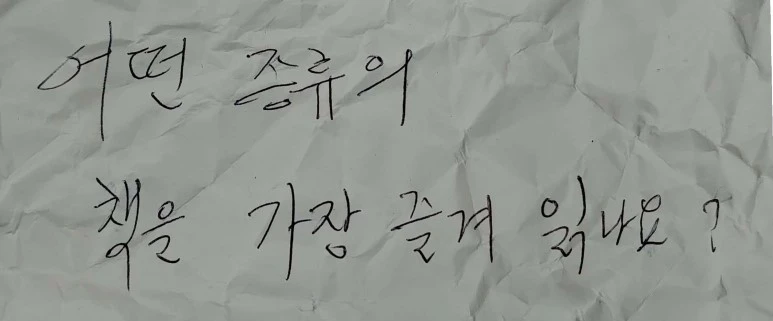 어떤 종류의
책을 가장 즐겨 읽나요?